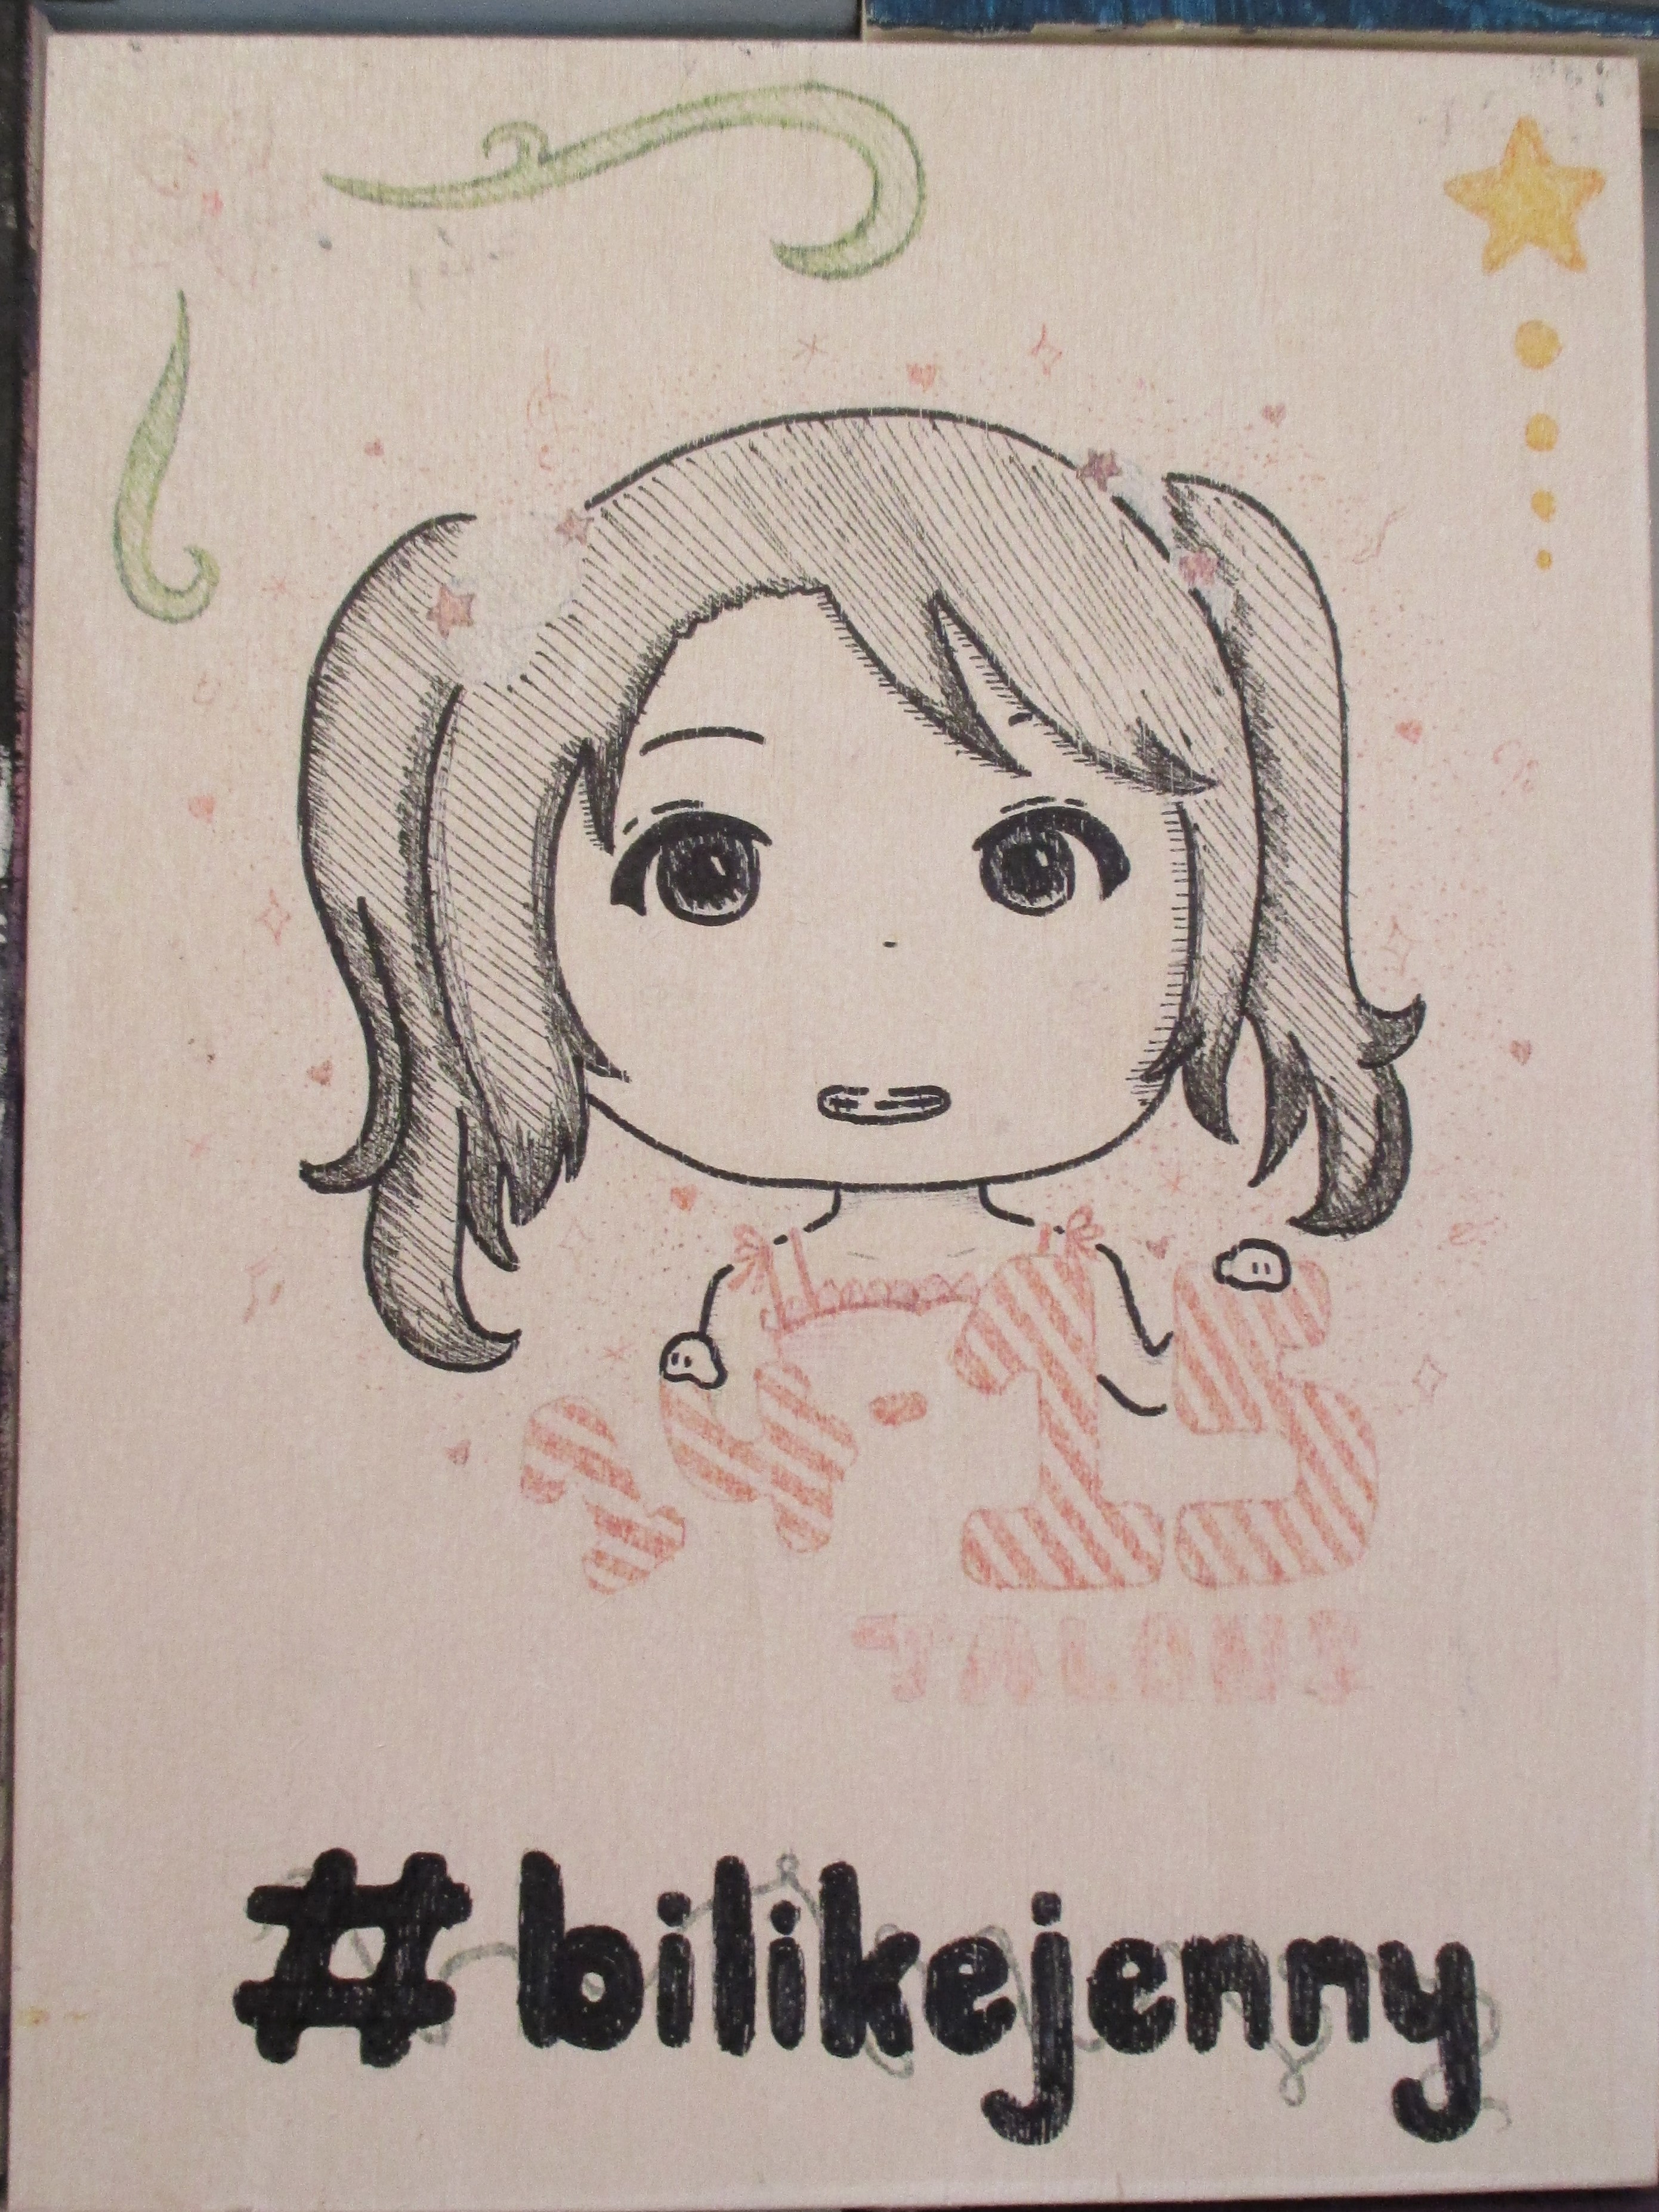 14-15
TALONS
#bilikejenny